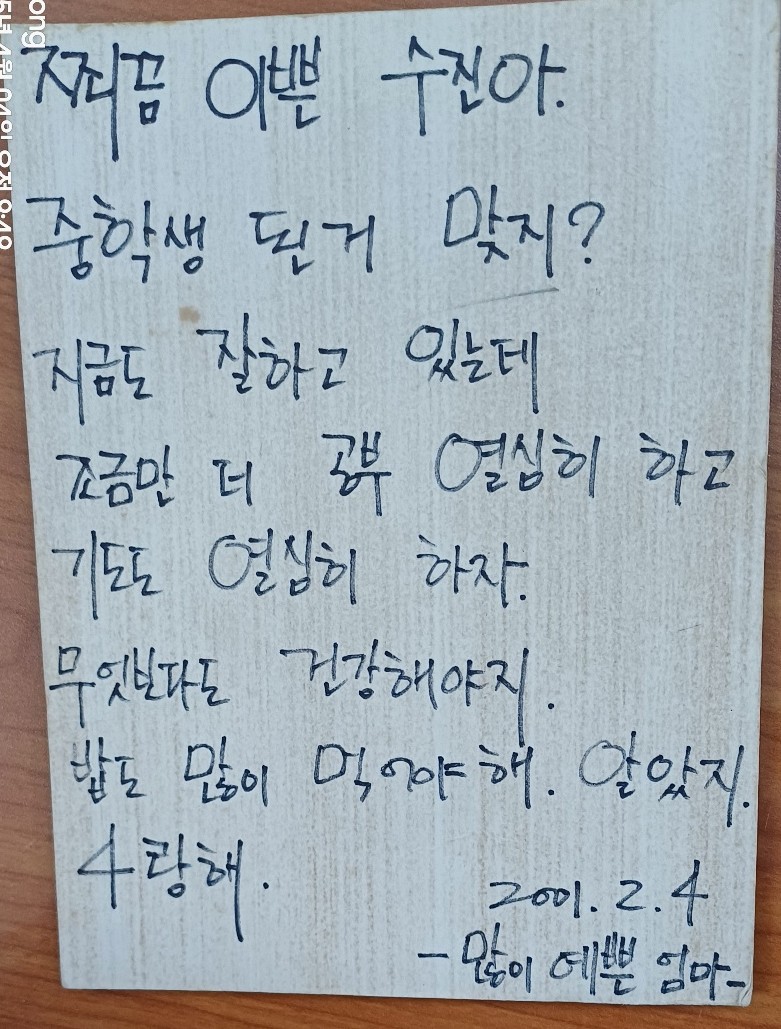 쬐끔 이쁜 수진아.
중학생 된거 맞지?
지금도 잘하고 있는데
조금만 더 공부 열심히 하고
기도도 열심히 하자.
무엇보다도 건강해야지.
밥도 많이 먹어야해. 알았지.
4랑해.
2001. 2. 4
- 많이 예쁜 엄마-